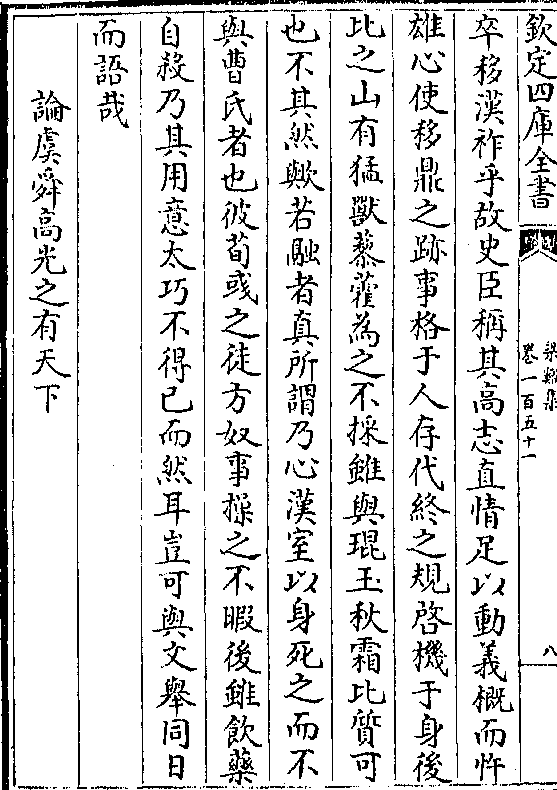 欽定四庫全書
梁谿集
卷一百五十一
八
卒移漢祚乎故史臣稱其高志直情足以動義概而忤
雄心使移鼎之跡事格于人存代終之規啓機于身後
比之山有猛獸藜藿為之不採雖與琨玉秋霜比質可
也不其然歟若融者真所謂乃心漢室以身死之而不
與曹氏者也彼荀彧之徒方奴事操之不暇後雖飲藥
自殺乃其用意太巧不得已而然耳豈可與文舉同日
而語哉
論虞舜高光之有天下